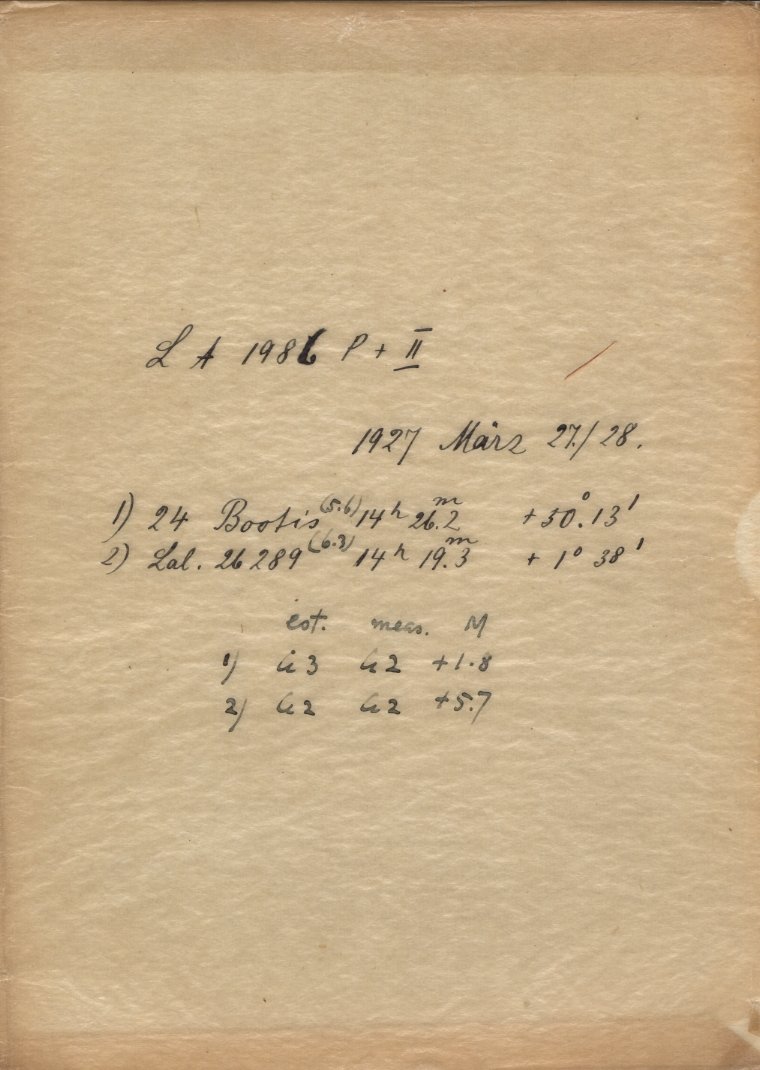 L A 1986 P + II
1927 März 27./28.
1) 24 Bootis (5.6) 14h 26.m2 +50°.13'
2) Lal. 26289 (6.3) 14h 19.m3 + 1° 38'
est. meas. M
1) G3 G2 +1.8
2) G2 G2 +5.7